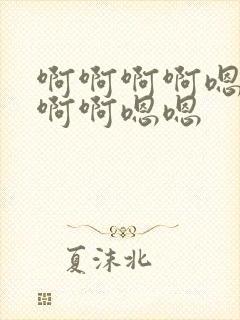 啊啊啊啊嗯
啊啊嗯嗯
夏沫北